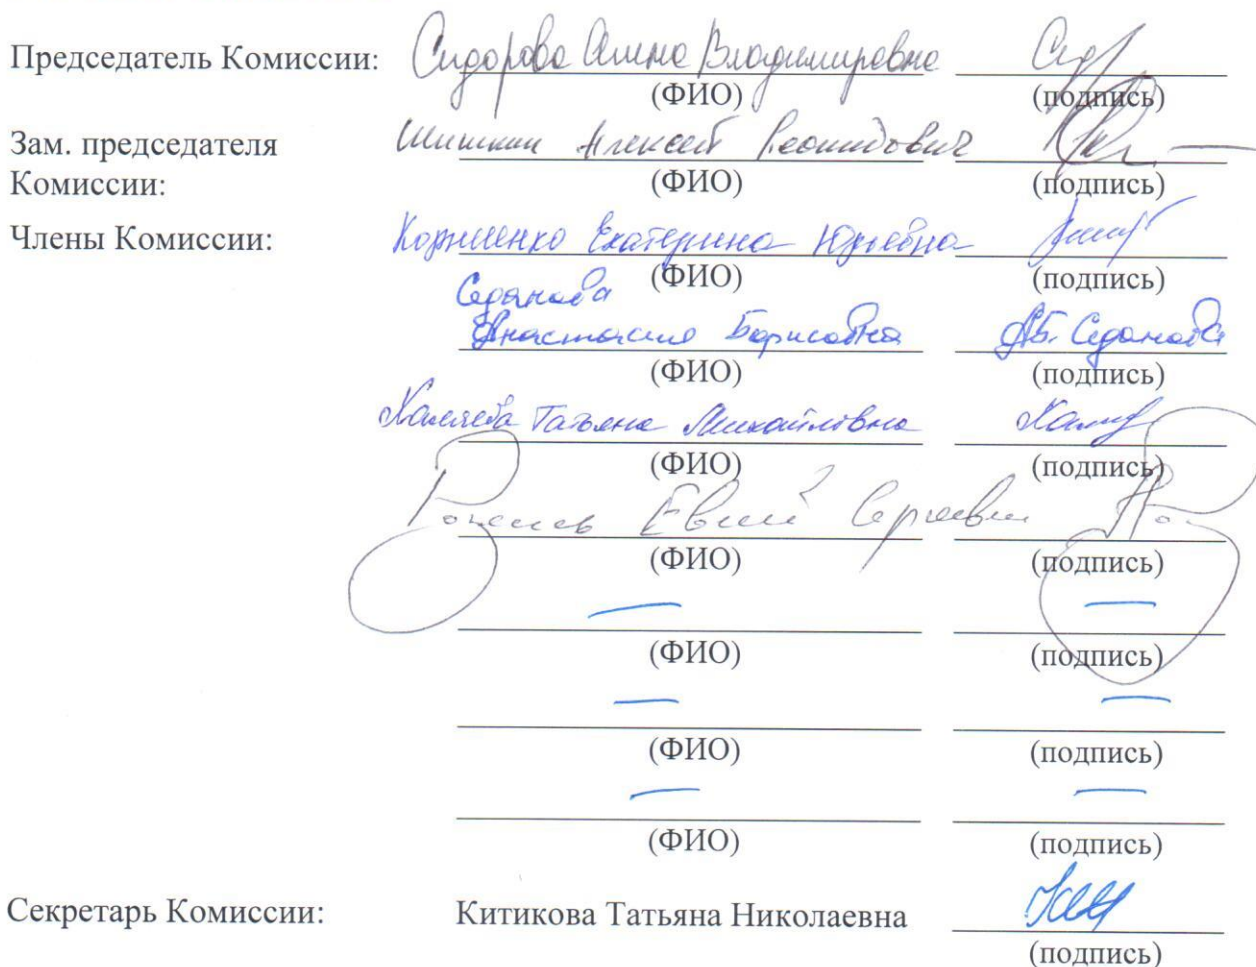 Председатель Комиссии: Сидорова Алина Владимировна
(ФИО) (подпись)
Зам. председателя Шишкин Алексей Леонидович
Комиссии: (ФИО) (подпись)
Члены Комиссии: Корниенко Екатерина Юрьевна
(ФИО) (подпись)
Седанова
Анастасия Борисовна А.Б. Седанова
(ФИО) (подпись)
Татьяна Михайловна
(ФИО) (подпись)
Сергеевич
(ФИО) (подпись)
(ФИО) (подпись)
(ФИО) (подпись)
(ФИО) (подпись)
Секретарь Комиссии: Китикова Татьяна Николаевна
(подпись)